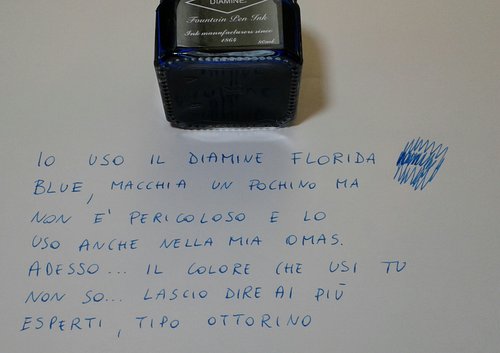 DIAMINE
Fountain Pen Ink
Ink manufacturers since
1864 80ml
IO USO IL DIAMINE FLORIDA
BLUE, MACCHIA UN POCHINO MA
NON E' PERICOLOSO E LO
USO ANCHE NELLA MIA OMAS.
ADESSO... IL COLORE CHE USI TU
NON SO... LASCIO DIRE AI PIÙ
ESPERTI, TIPO OTTORINO